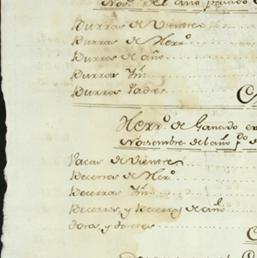 Nov.e del año pasado
Burras de Vientre
Burras de Herr.o
Burras de año
Burros Yd.
Burros Padres
Herr.o de Ganado
Noviembre del año p.do
Vacas de Vientre
Becerras de Her.o
Becerros Yd.
Becerros, y Becerras de año
Toros, y Toretes